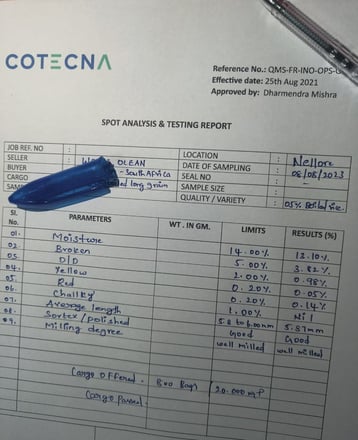 COTECNA
Reference No.: QMS-FR-INO-OPS-
Effective date: 25th Aug 2021
Approved by: Dharmendra Mishra
SPOT ANALYSIS & TESTING REPORT
JOB REF. NO : LOCATION : Nellore
SELLER : OLEAN DATE OF SAMPLING : 08/08/2023
BUYER - South Africa SEAL NO : -
CARGO long grain SAMPLE SIZE :
QUALITY / VARIETY : 05% Boiled rice
Sl. No. PARAMETERS WT. IN GM. LIMITS RESULTS (%)
01. Moisture 14.00% 13.10%
02. Broken 5.00% 3.82%
03. D/D 2.00% 0.98%
04. Yellow 0.20% 0.05%
05. Red 0.20% 0.14%
06. Chalky 1.00% Nil
07. Average length 5.8 to 6.00mm 5.87mm
08. Sortex/polished Good Good
09. Milling degree well milled well milled
Cargo Offered. Bags
Cargo Passed.